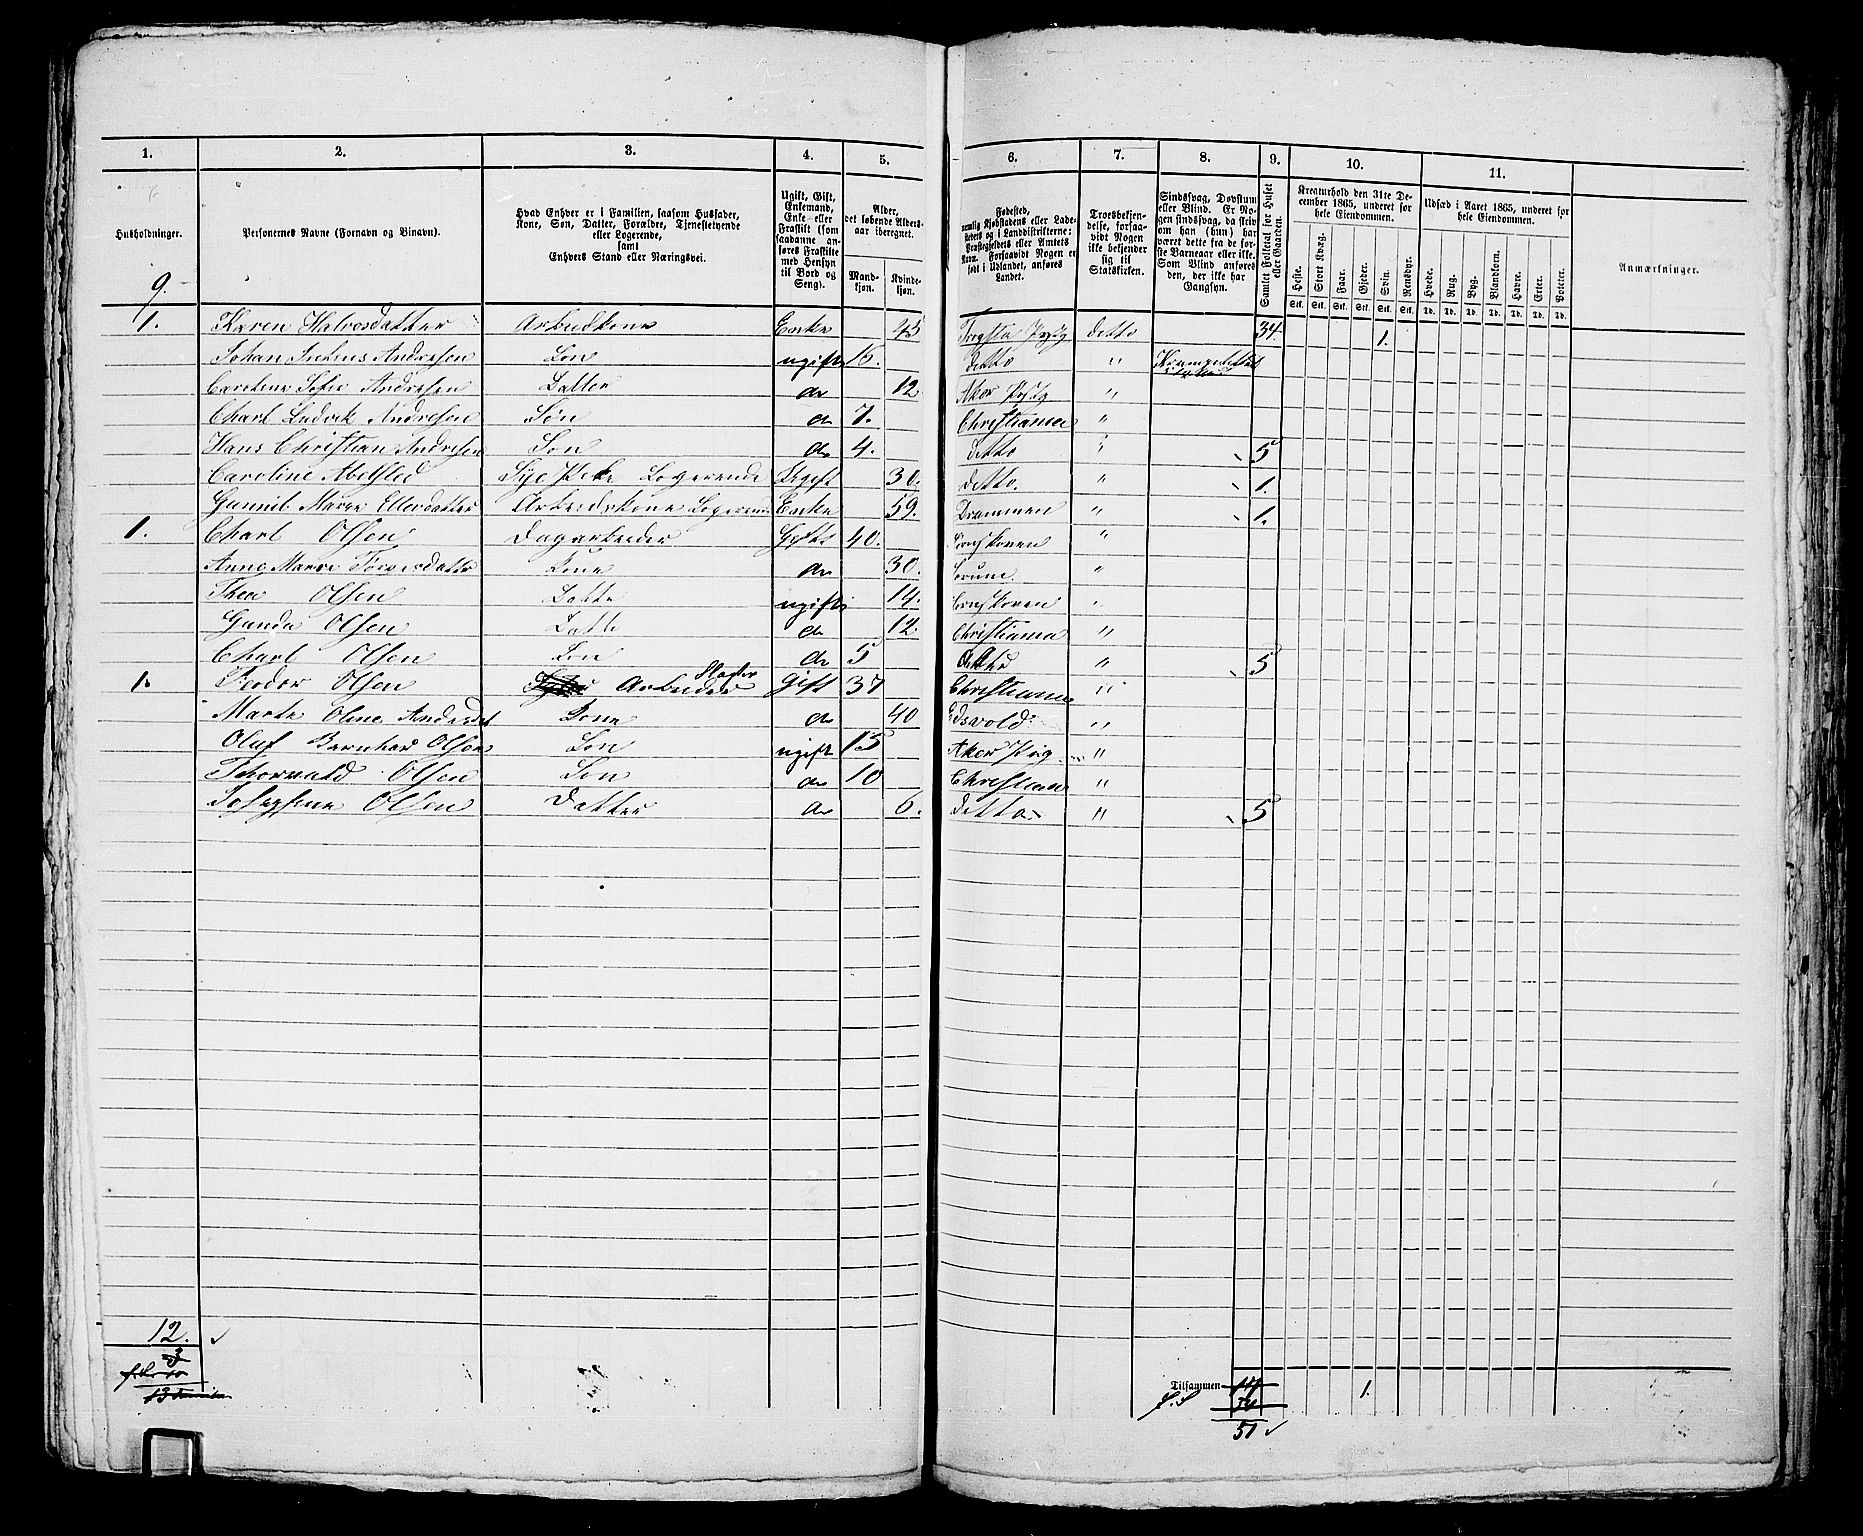 1. 2. 3. 4. 5. 6. 7. 8. 9. 10. 11.
Husholdninger.
Personernes Navne (Fornavn og Binavn).
Hvad Enhver er i Familien, saasom Husfader,
Kone, Søn, Datter, Forældre, Tjenestetyende
eller Logerende,
samt
Enhvers Stand eller Næringsvei.
Ugift, Gift,
Enkemand,
Enke eller
Fraskilt (som
saadanne an-
føres Fraskilte
med Hensyn
til Bord og
Seng).
Alder,
det løbende Alders-
aar iberegnet.
Mand-
kjøn.
Kvinde-
kjøn.
Fødested,
nemlig Kjøbstadens eller Lade-
stedets og i Landdistrikterne:
Præstegjeldets eller Amtets
Navn. Forsaavidt Nogen er
født i Udlandet, anføres
Landet.
Troesbekjen-
delse, forsaa-
vidt Nogen
ikke bekjender
sig til
Statskirken.
Sindssvag, Døvstum
eller Blind. Er No-
gen sindssvag, da skriv
om han (hun) har
været dette fra de før-
ste Barneaar eller ikke.
Som Blind anføres
den, der ikke har
Gangsyn.
Samlet Folketal for Huset
eller Gaarden.
Kreaturhold den 31te De-
cember 1865, underet for
hele Eiendommen.
Heste. Stort Kvæg. Faar. Gjeder. Svin. Rensdyr.
Stk. Stk. Stk. Stk. Stk. Stk.
Udsæd i Aaret 1865, underet for
hele Eiendommen.
Hvede. Rug. Byg. Blandkorn. Havre. Erter. Poteter.
Td. Td. Td. Td. Td. Td. Td.
Anmærkninger.
9.
1. Karen Halvosdatter Arbeidkone Enke 45 Prgjg detto 34. 1.
Johan Andresen Søn ugift 16. detto "
Sofie Andresen Datter do 12 Aker Prstg "
Charl Ludvik Andresen Søn do 7. Christiania "
Hans Christian Andresen Søn do 4. detto " 5
Caroline Abelsted Sye Peke Logerende Ugift 30. detto. " 1.
Gunnil Marie Ellersdatter Arbeidskone Logerende Enke 59. Drammen " 1.
1. Charl Olsen Dagarbeider Gift 40. "
Anne Marie Kone do 30. Sørum "
Thea Olsen Datte ugift 14. "
Gunda Olsen Datte do 12. Christiania "
Charl Olsen Søn do 5 detto " 5
1. Teodor Olsen Arbeider Gift 37 Christiania "
Marte Oline Andersdt Kone do 40 Edsvold "
Oluf Bernhar Olsen Søn ugift 15 Aker "
Thorvald Olsen Søn do 10 Christiania "
Josepfine Olsen Datter do 6. detto " 5
12.
3
13
Tilsammen 17 1.
34
51